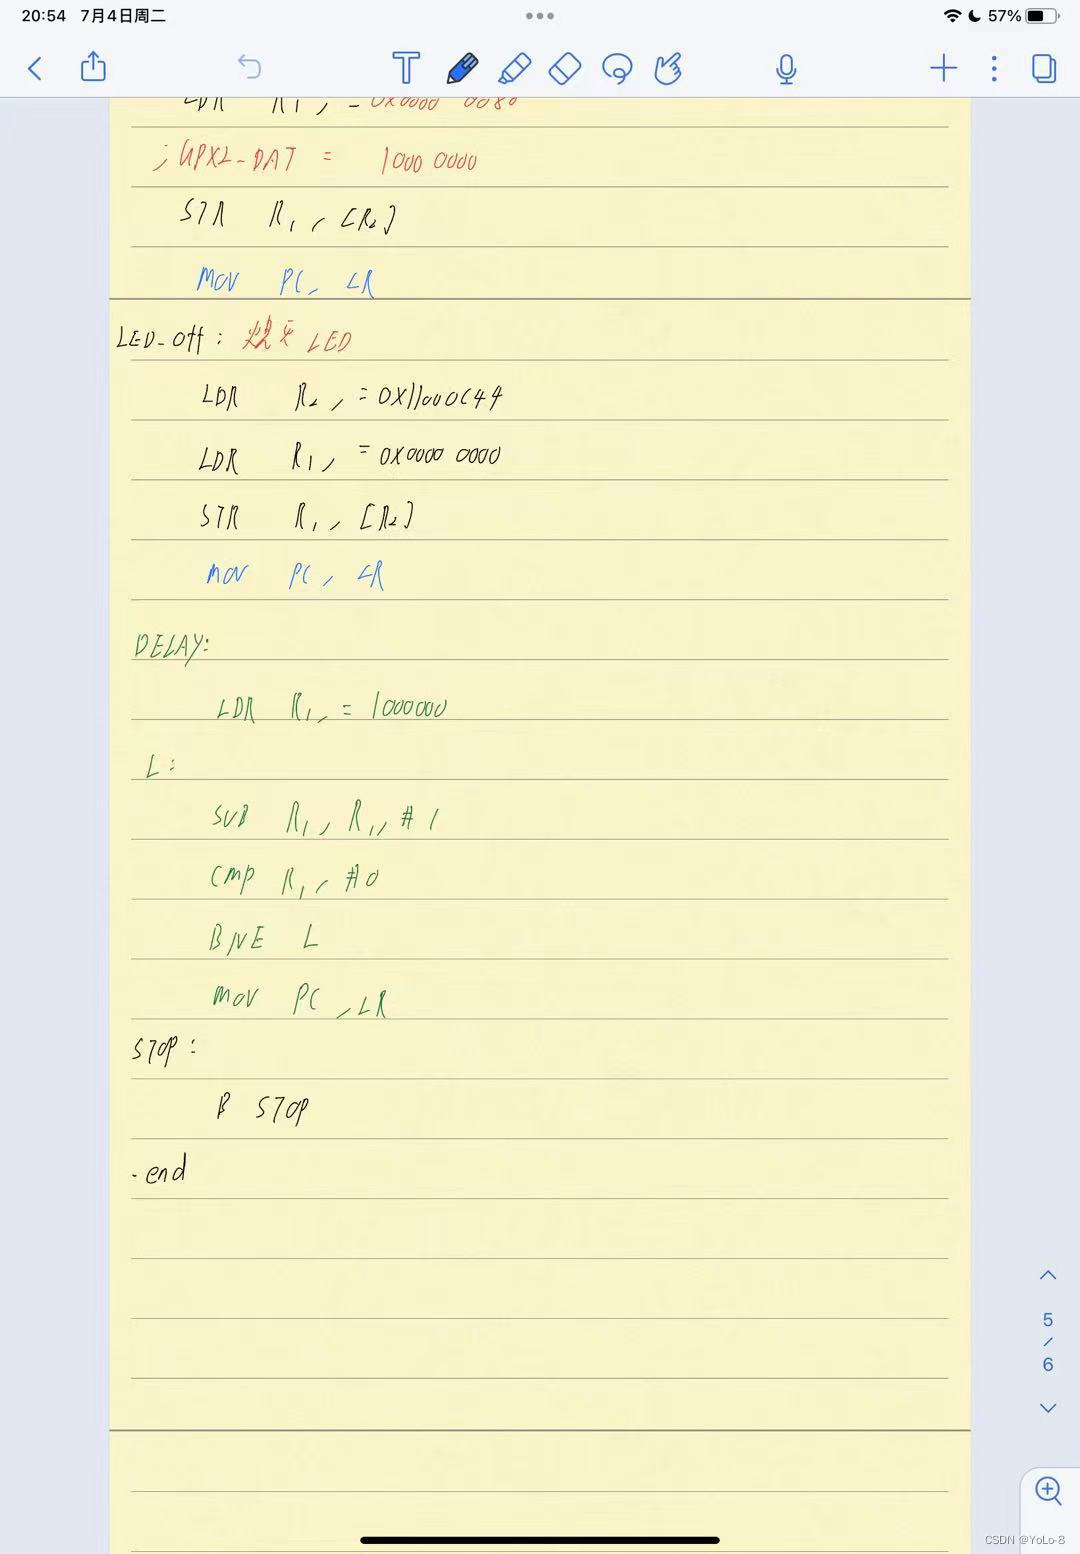 20:54 7月4日周二
57%
LDR R1, = 0x0000 0080
; GPX2-DAT = 1000 0000
STR R1, [R2]
MOV PC, LR
LED-off: 熄灭 LED
LDR R2, = 0X11000C44
LDR R1, = 0X0000 0000
STR R1, [R2]
MOV PC, LR
DELAY:
LDR R1, = 1000000
L:
SUB R1, R1, #1
CMP R1, #0
BNE L
MOV PC, LR
STOP:
B STOP
.end
5
/
6
CSDN @YoLo-8